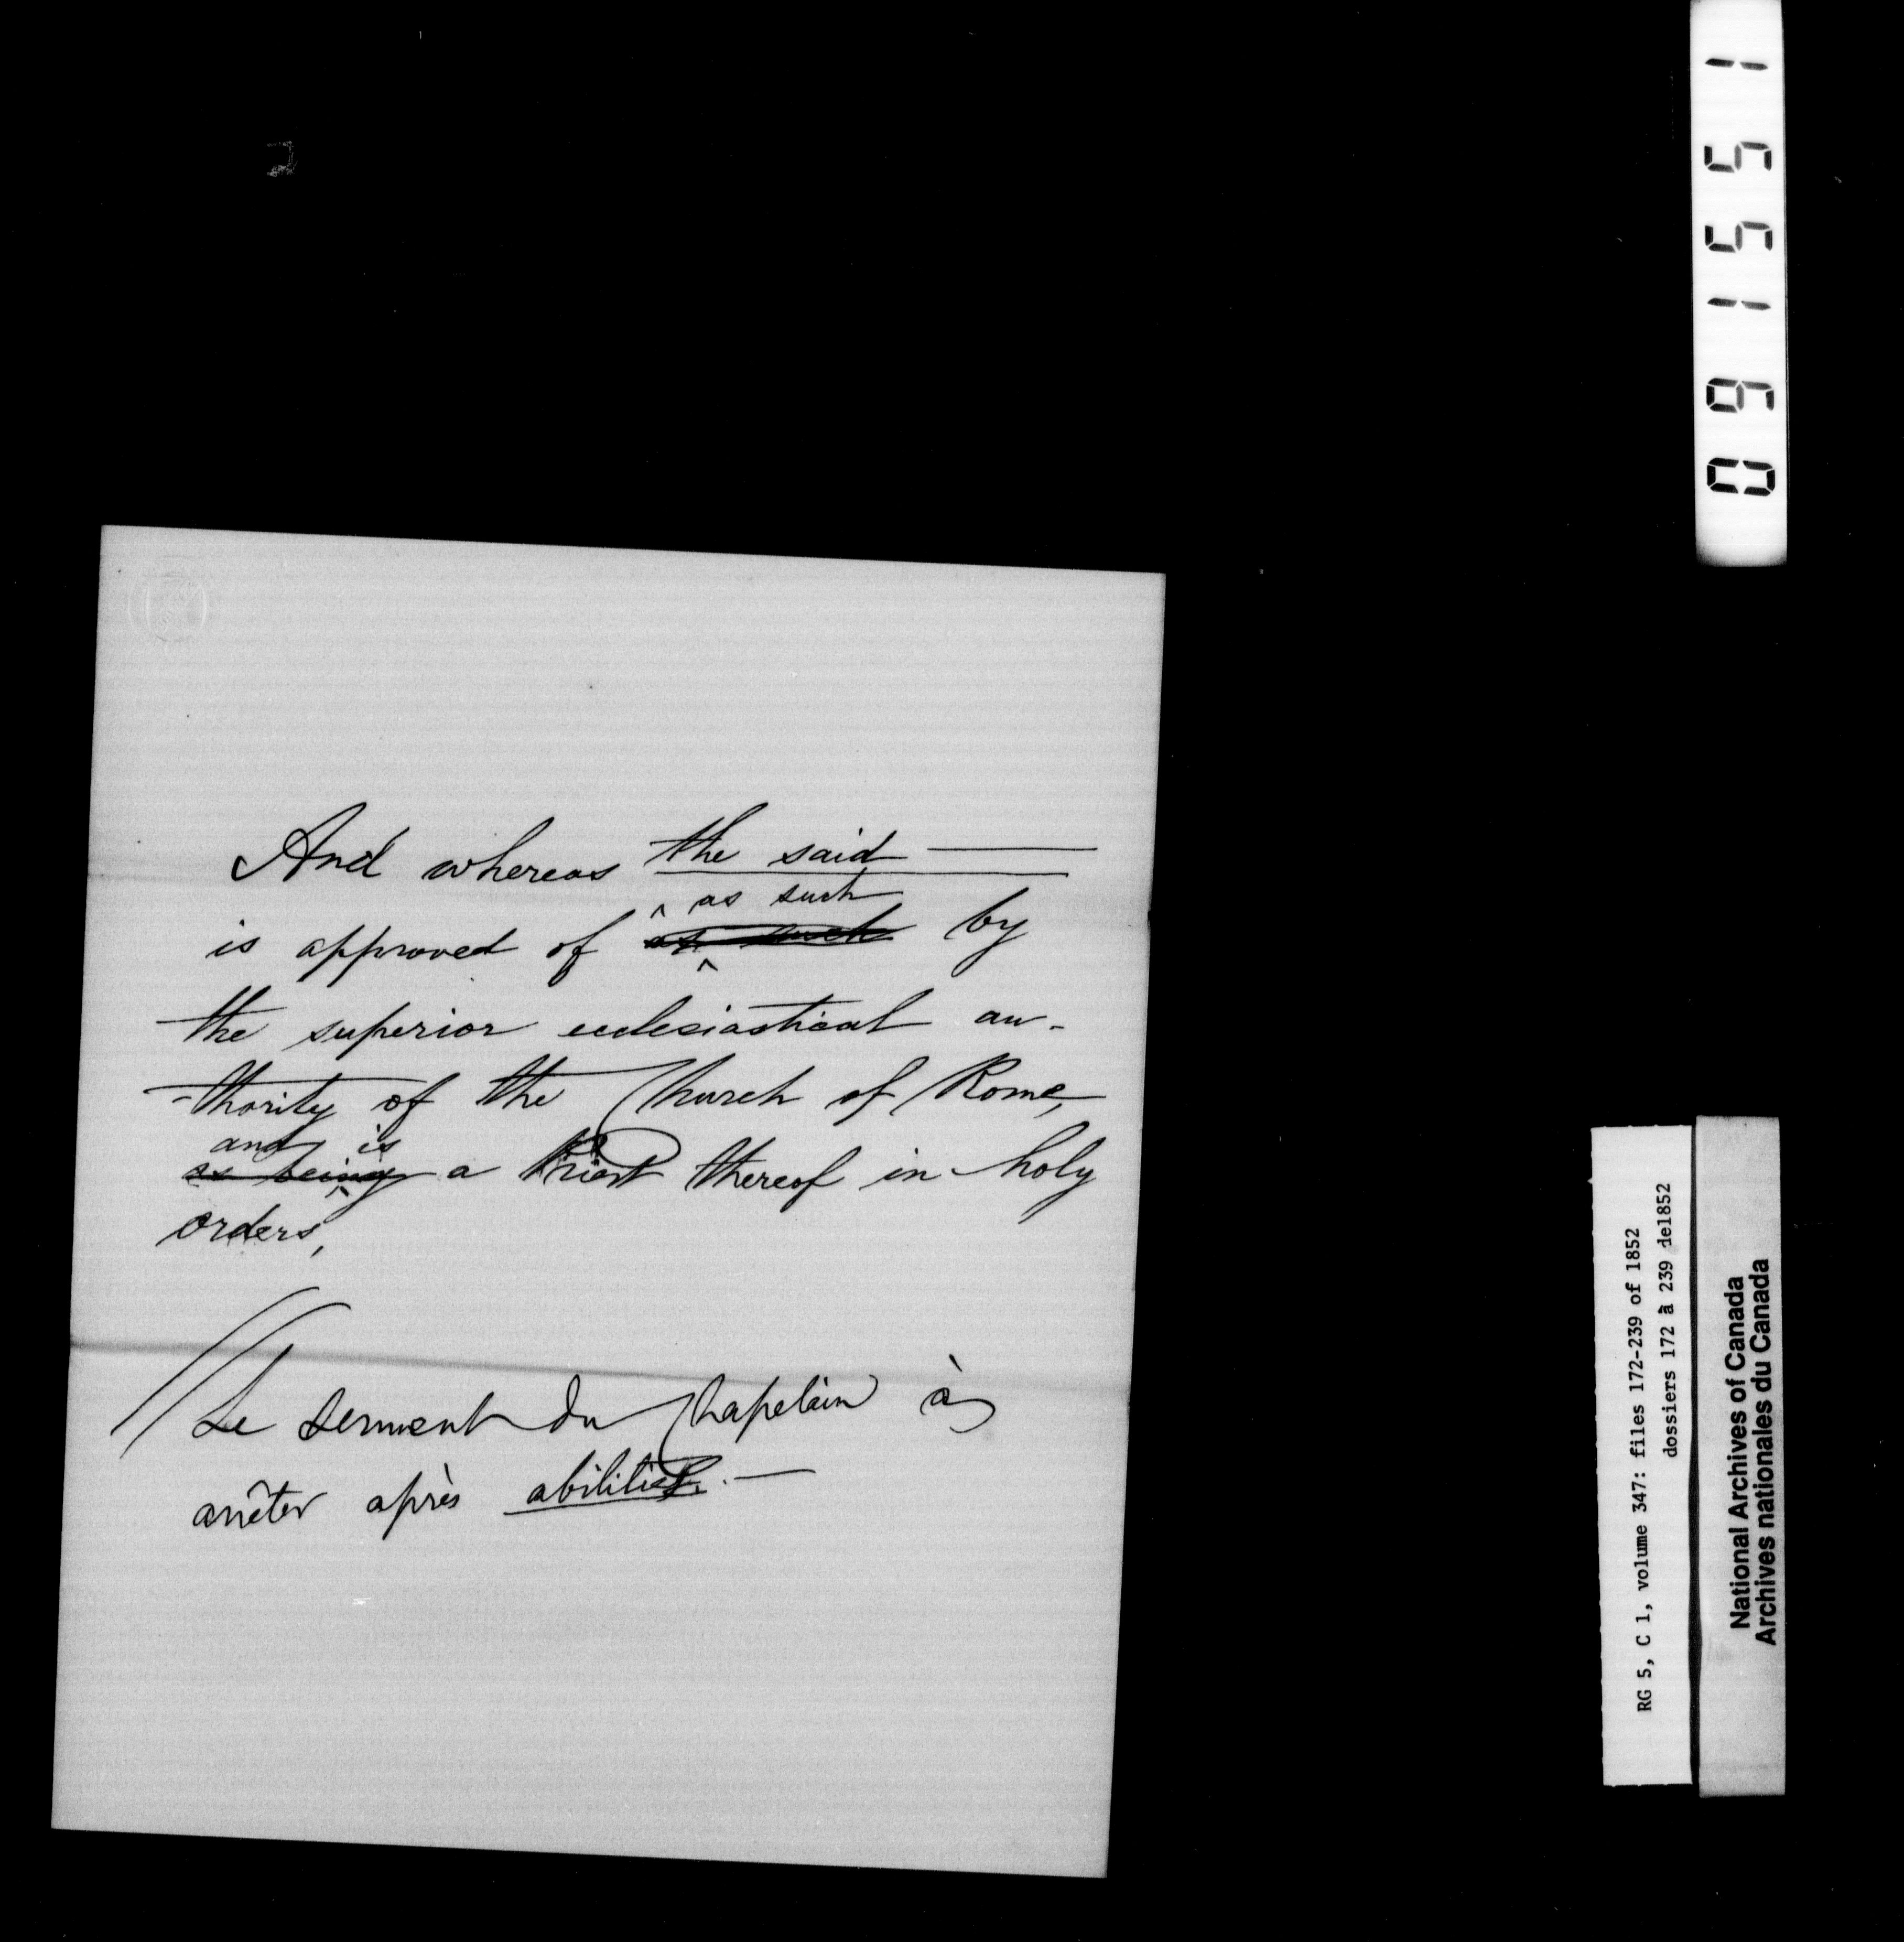 And whereas the said ———
as such
is approved of as such by
the superior ecclesiastical au-
-thority of the Church of Rome,
and is
as being a Priest thereof in holy
orders,
Le serment du Chapelain à
arrêter après abilities. —
061551
RG 5, C 1, volume 347: files 172-239 of 1852
dossiers 172 à 239 de1852
National Archives of Canada
Archives nationales du Canada